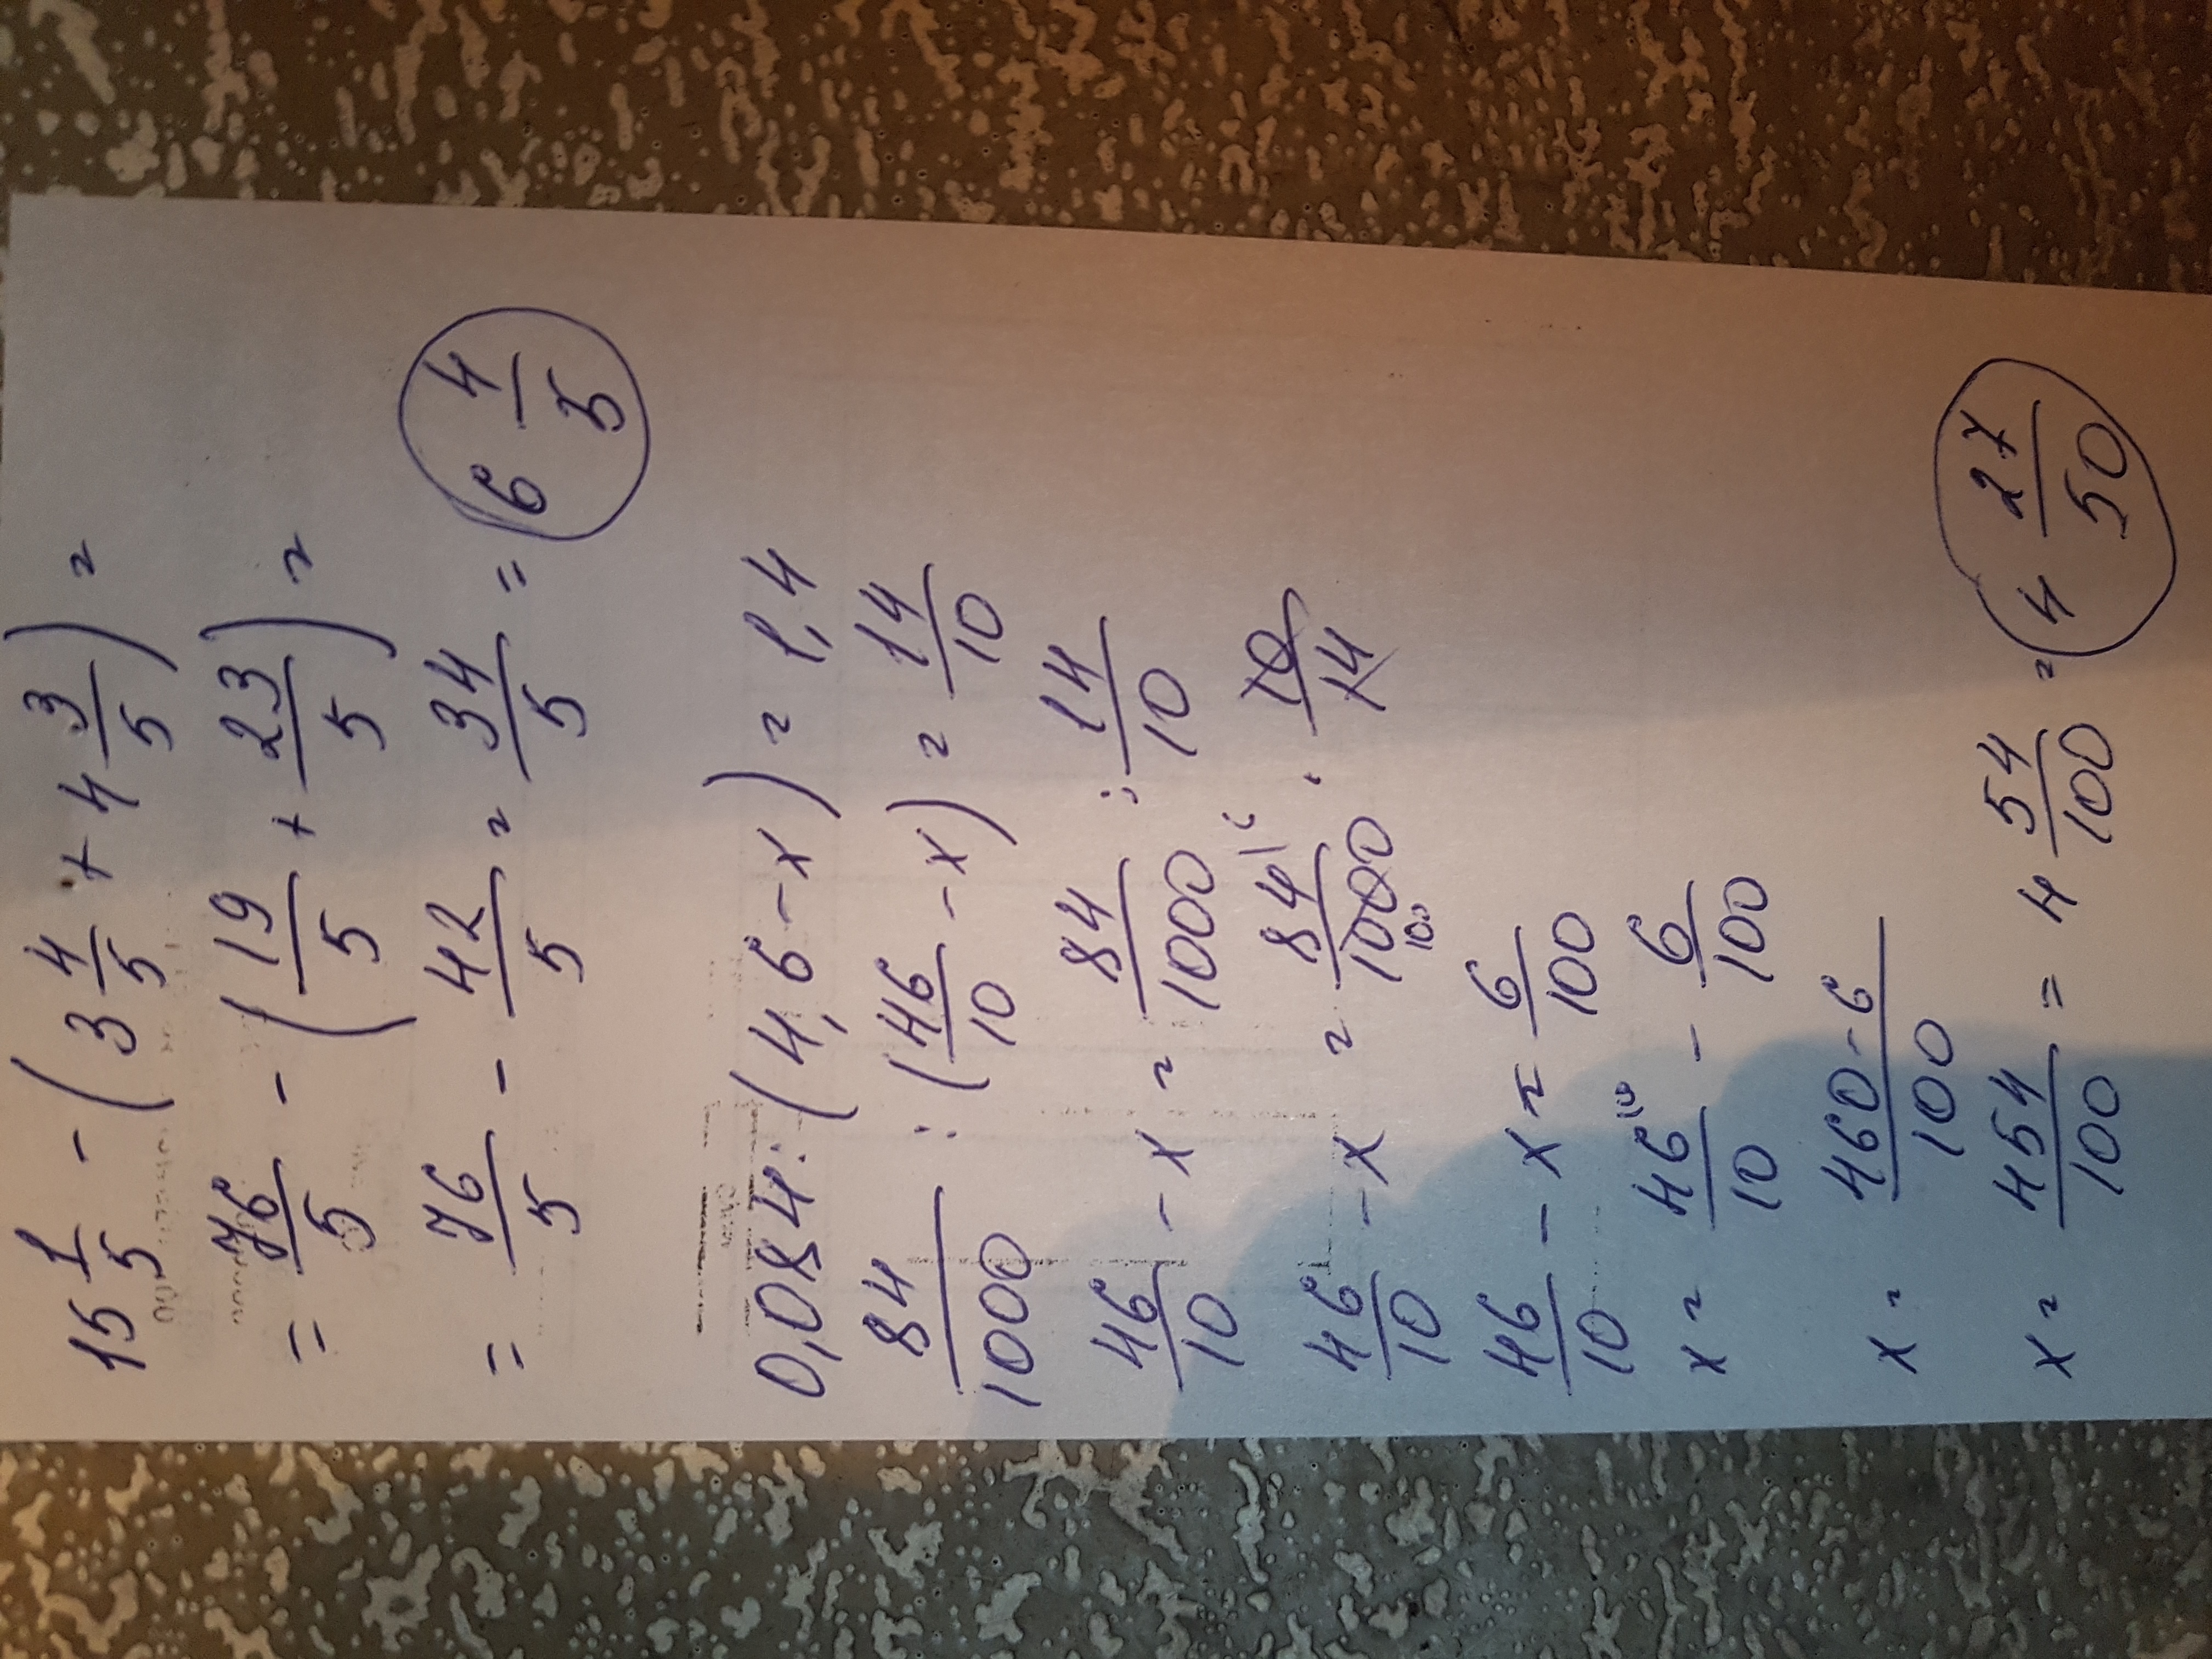 15 1/5 - (3 4/5 + 4 3/5) =
= 76/5 - (19/5 + 23/5) =
= 76/5 - 42/5 = 34/5 = 6 4/5
0,084 : (4,6 - x) = 1,4
84/1000 : (46/10 - x) = 14/10
46/10 - x = 84/1000 : 14/10
46/10 - x = 84/1000 · 10/14
6
100
46/10 - x = 6/100
x = 46/10 - 6/100
10
x = 460-6/100
x = 454/100 = 4 54/100 = 4 27/50